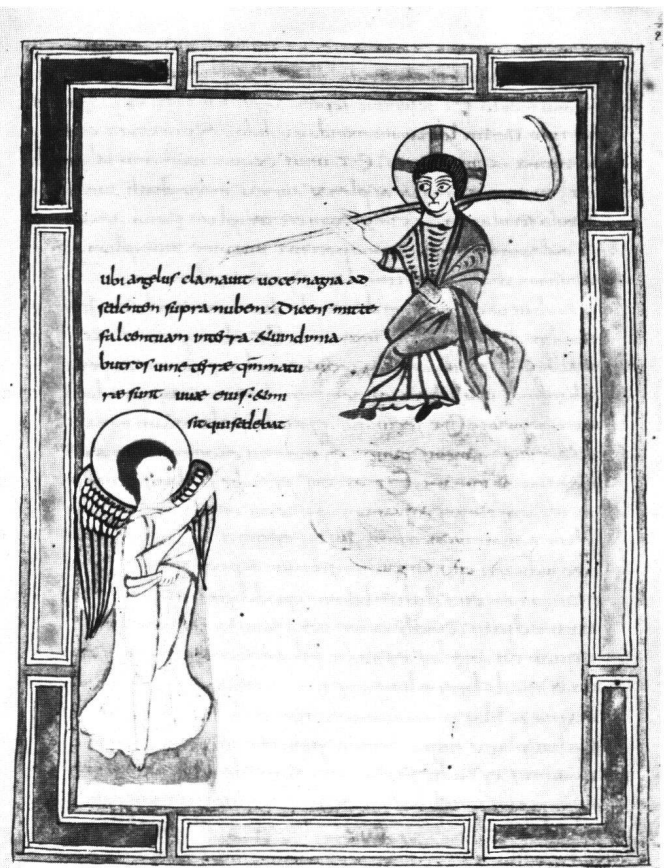 ubi angelus clamauit uoce magna ad
sedentem supra nubem. Dicens mitte
falcem tuam in terra &uindimia
butros uine terrae qm̅ matu
rae sunt uuae eius. &mi
sit qui sedebat